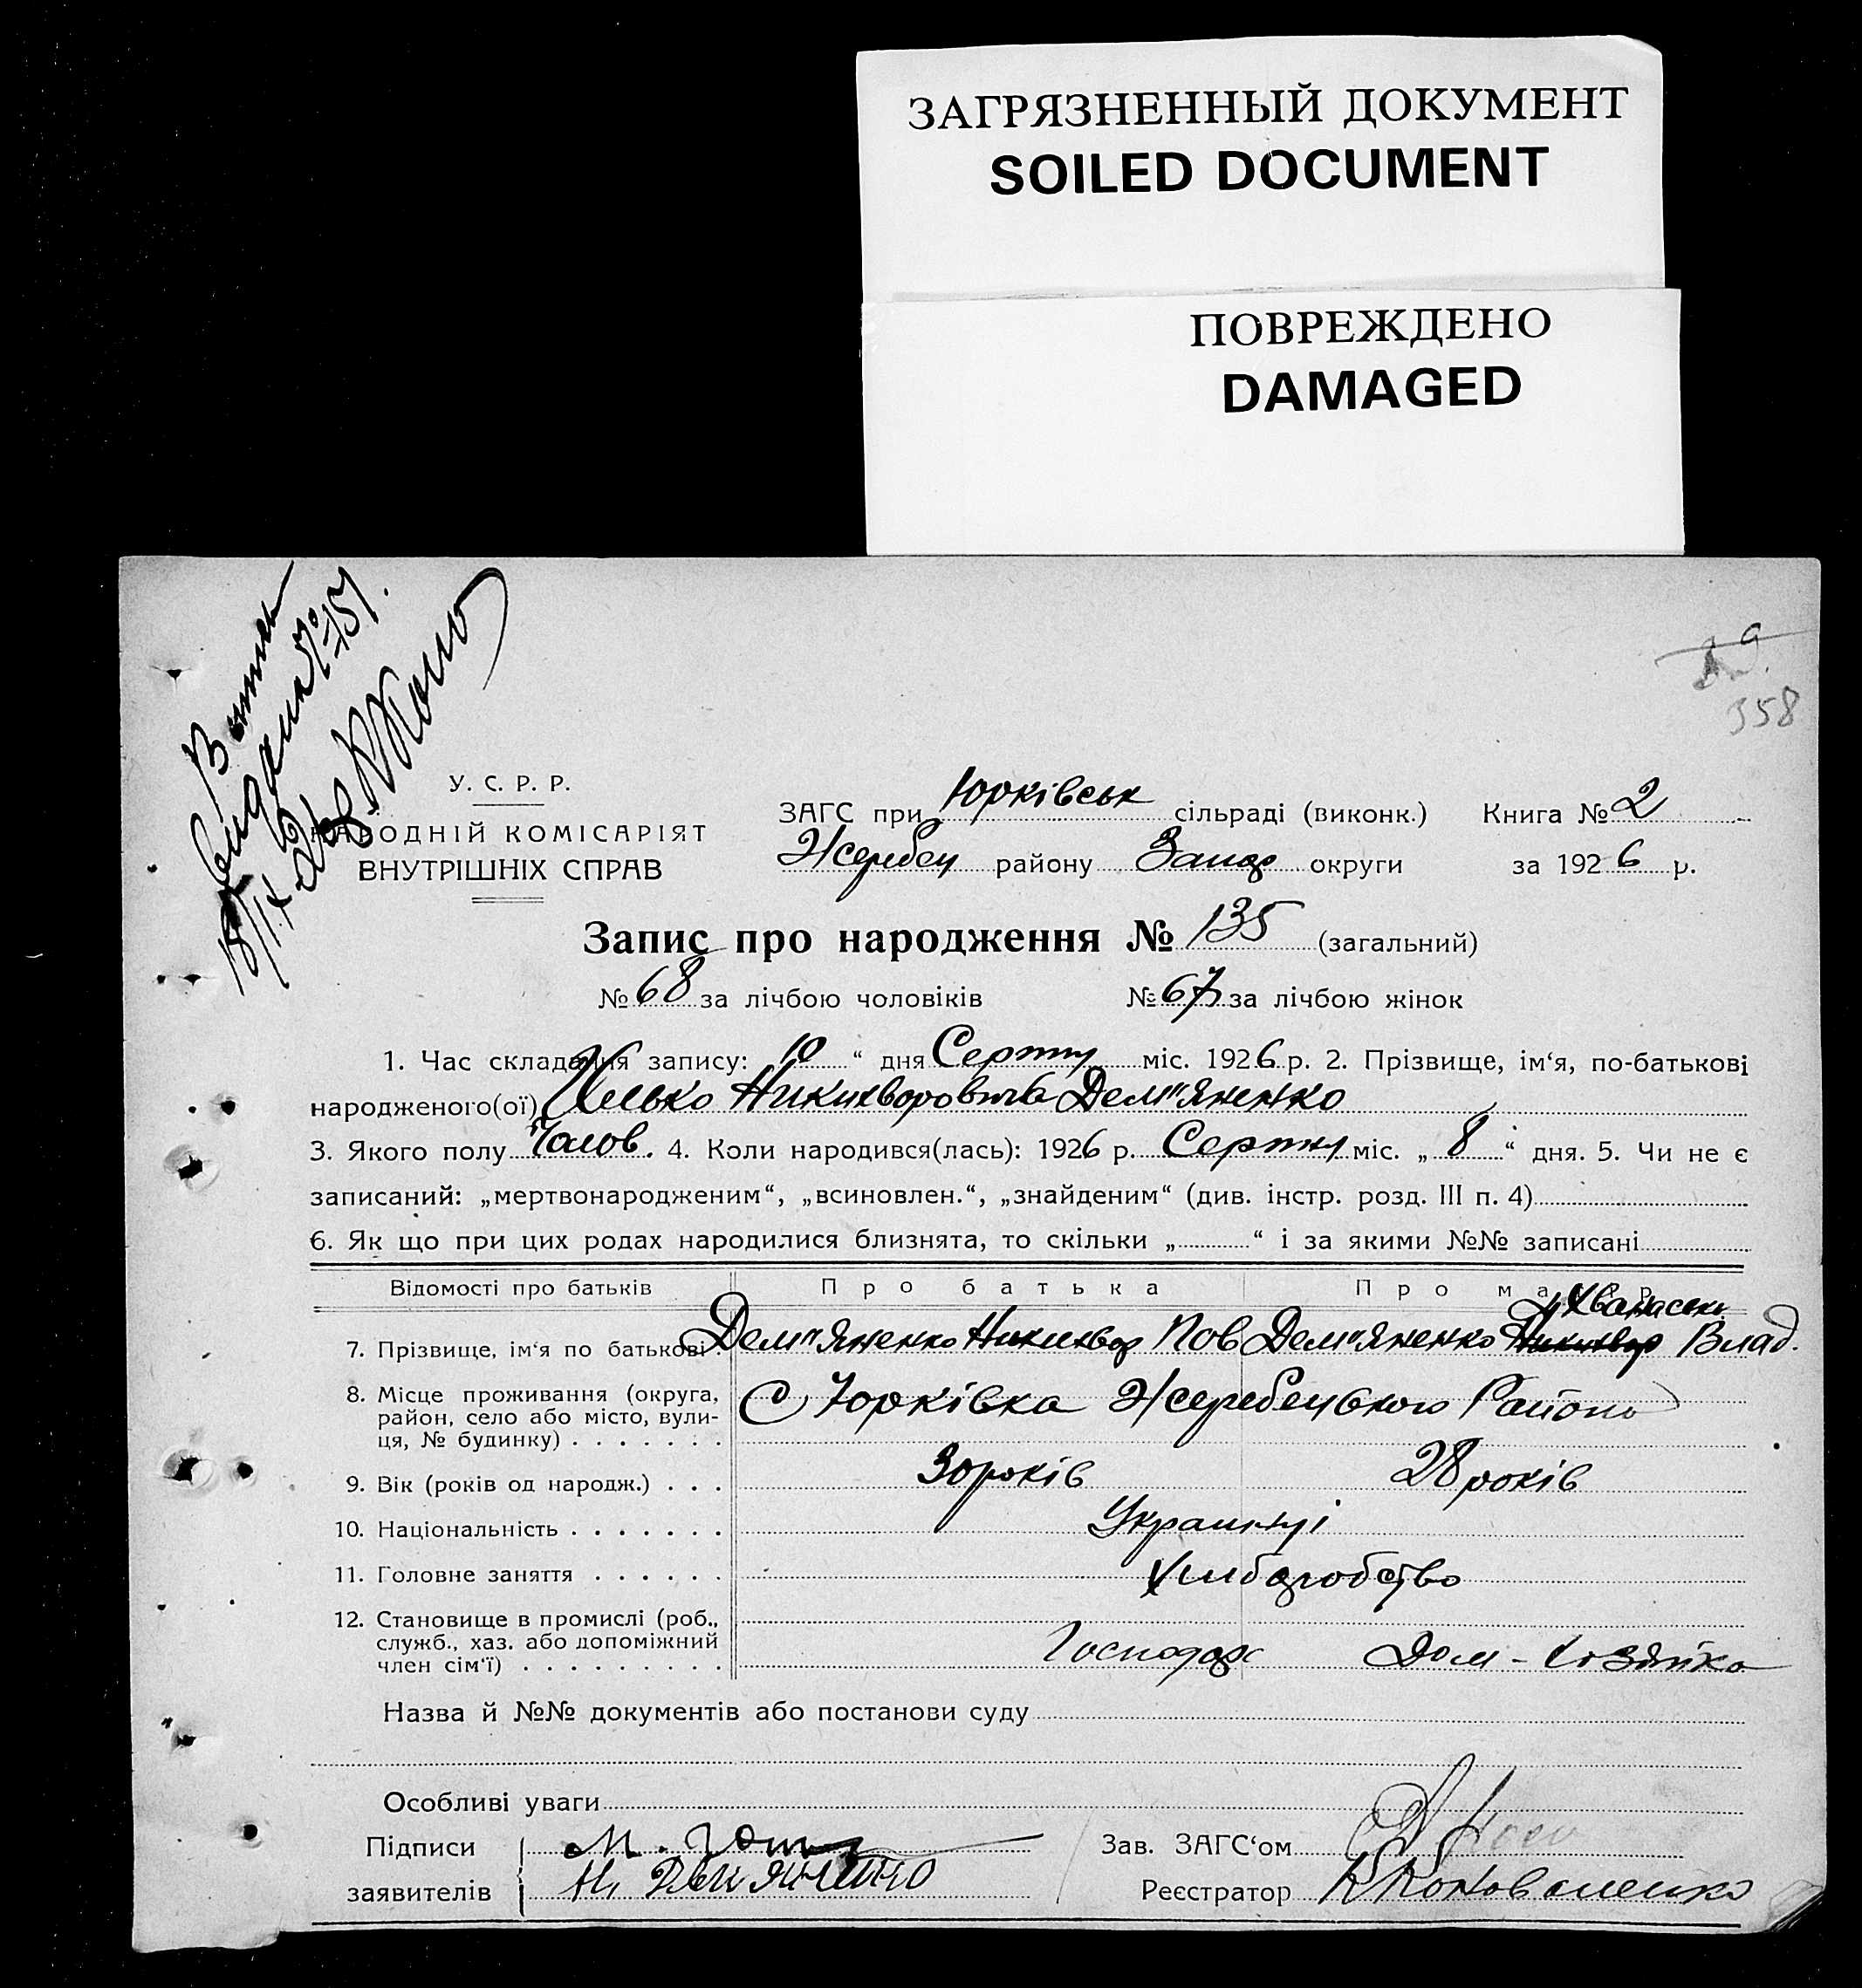 ЗАГРЯЗНЕННЫЙ ДОКУМЕНТ
SOILED DOCUMENT
ПОВРЕЖДЕНО
DAMAGED
358
У. С. Р. Р.
НАРОДНІЙ КОМІСАРІЯТ
ВНУТРІШНІХ СПРАВ
ЗАГС при Юрківськ сільраді (виконк.) Книга № 2
Жеребец району Запор округи за 1926 р.
Запис про народження № 135 (загальний)
№ 68 за лічбою чоловіків № 67 за лічбою жінок
1. Час складання запису: 10 " дня Серпня міс. 1926 р. 2. Прізвище, ім'я, по-батькові
народженого(ої) Илько Никихворовича Дем"яненко
3. Якого полу Чолов. 4. Коли народився(лась): 1926 р. Серпня міс. „ 8 " дня. 5. Чи не є
записаний: „мертвонародженим", „всиновлен.", „знайденим" (див. інстр. розд. III п. 4)
6. Як що при цих родах народилися близнята, то скільки „ " і за якими №№ записані
Відомості про батьків Про батька Про матір
7. Прізвище, ім'я по батькові. Дем"яненко Никихвор Пов Дем"яненко Никихвор Влад.
8. Місце проживання (округа,
район, село або місто, вули-
ця, № будинку) . . . . . . . С Юрківка Жеребецького Району
9. Вік (років од народж.) . . . 30 років 28 років
10. Національність . . . . . . . Українці
11. Головне заняття . . . . . . Хлиборобство
12. Становище в промислі (роб.,
служб., хаз. або допоміжний
член сім'ї) . . . . . . . . . Господар Дом-хозяйка
Назва й №№ документів або постанови суду
Особливі уваги
Підписи Зав. ЗАГС'ом
заявителів Н. Демяненко Реєстратор К Коноваленко